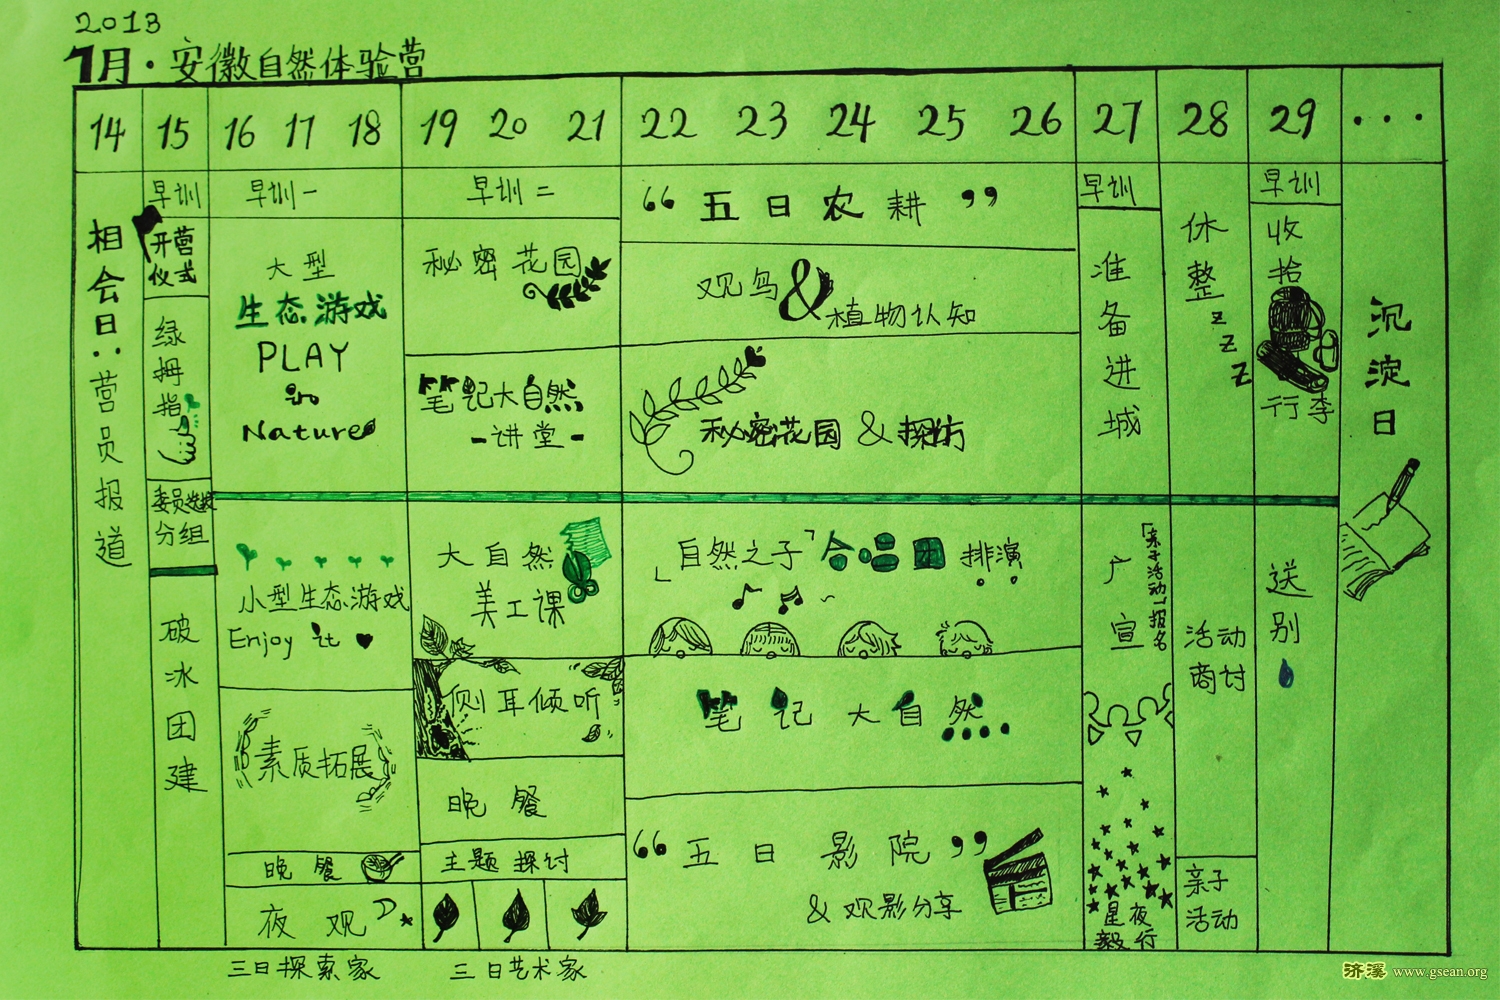 2013
7月·安徽自然体验营
14 15 16 17 18 19 20 21 22 23 24 25 26 27 28 29 ...
相会日:营员报道
早训
开营
仪式
绿拇指
委员选拔
分组
破冰团建
早训一
大型
生态游戏
PLAY
in
Nature
小型生态游戏
Enjoy it
素质拓展
晚餐
夜观
三日探索家
早训二
秘密花园
笔记大自然
-讲堂-
大自然
美工课
侧耳倾听
晚餐
主题探讨
三日艺术家
“五日农耕”
观鸟&植物认知
秘密花园&探访
「自然之子」合唱团排演
笔记大自然....
“五日影院”
&观影分享
早训
准备进城
广宣
「亲子活动」报名
星夜
毅行
休整zzz
活动
商讨
亲子
活动
早训
收拾
行李
送别
沉淀日
济溪 www.gsean.org